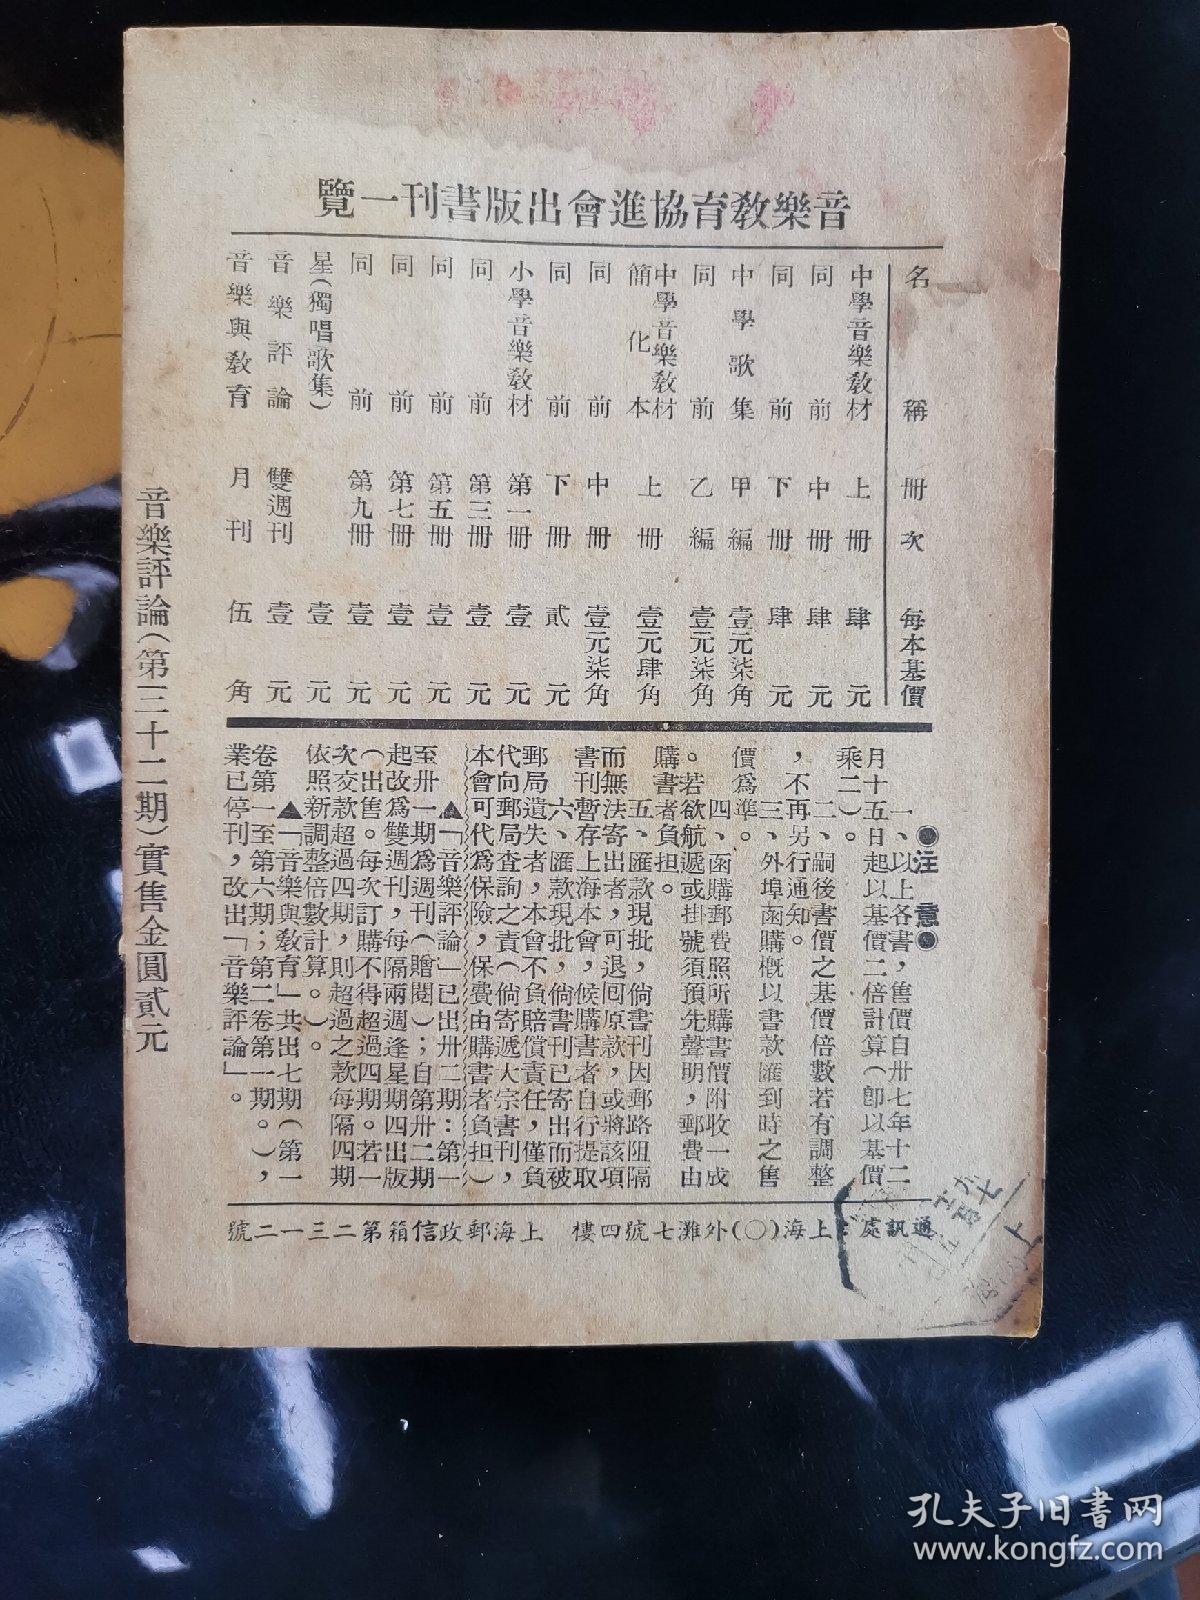 音樂教育協進會出版書刊一覽
名稱 冊次 每本基價
中學音樂教材 上冊 肆元
同前 中冊 肆元
同前 下冊 肆元
中學歌集 甲編 壹元柒角
同前 乙編 壹元柒角
中學音樂教材簡化本 上冊 壹元肆角
同前 中冊 壹元柒角
同前 下冊 貳元
小學音樂教材 第一冊 壹元
同前 第三冊 壹元
同前 第五冊 壹元
同前 第七冊 壹元
同前 第九冊 壹元
星(獨唱歌集) 壹元
音樂評論 雙週刊 壹元
音樂與教育 月刊 伍角
●注意●
一、以上各書，售價自卅七年十二
月十五日起以基價二倍計算(即以基價
乘二)。
二、嗣後書價之基價倍數若有調整
，不再另行通知。
三、外埠函購概以書款匯到時之售
價爲準。
四、函購郵費照所購書價附收一成
。若欲航遞或掛號須預先聲明，郵費由
購書者負担。
五、匯款現批，倘書刊因郵路阻隔
而無法寄出者，可退囘原款，或將該項
書刊暫存上海本會，候購書者自行提取
六、匯款現批，倘書刊已寄出而被
郵局遺失者，本會不負賠償責任，僅負
代向郵局查詢之責(倘寄遞大宗書刊，
本會可代爲保險，保費由購書者負担)
▲「音樂評論」已出卅二期：第一
至卅一期爲週刊(贈閱)；自第卅二期
起改爲雙週刊，每隔兩週逢星期四出版
(出售。每次訂購不得超過四期。若一
次交款超過四期，則超過之款每隔四期
依照新調整倍數計算。)。
▲「音樂與教育」共出七期(第一
卷第一至第六期；第二卷第一期。)，
業已停刊，改出「音樂評論」。
通訊處：上海(〇)外灘七號四樓 上海郵政信箱第二三一二號
音樂評論(第三十二期)實售金圓貳元
上
孔夫子旧書网
www.kongfz.com